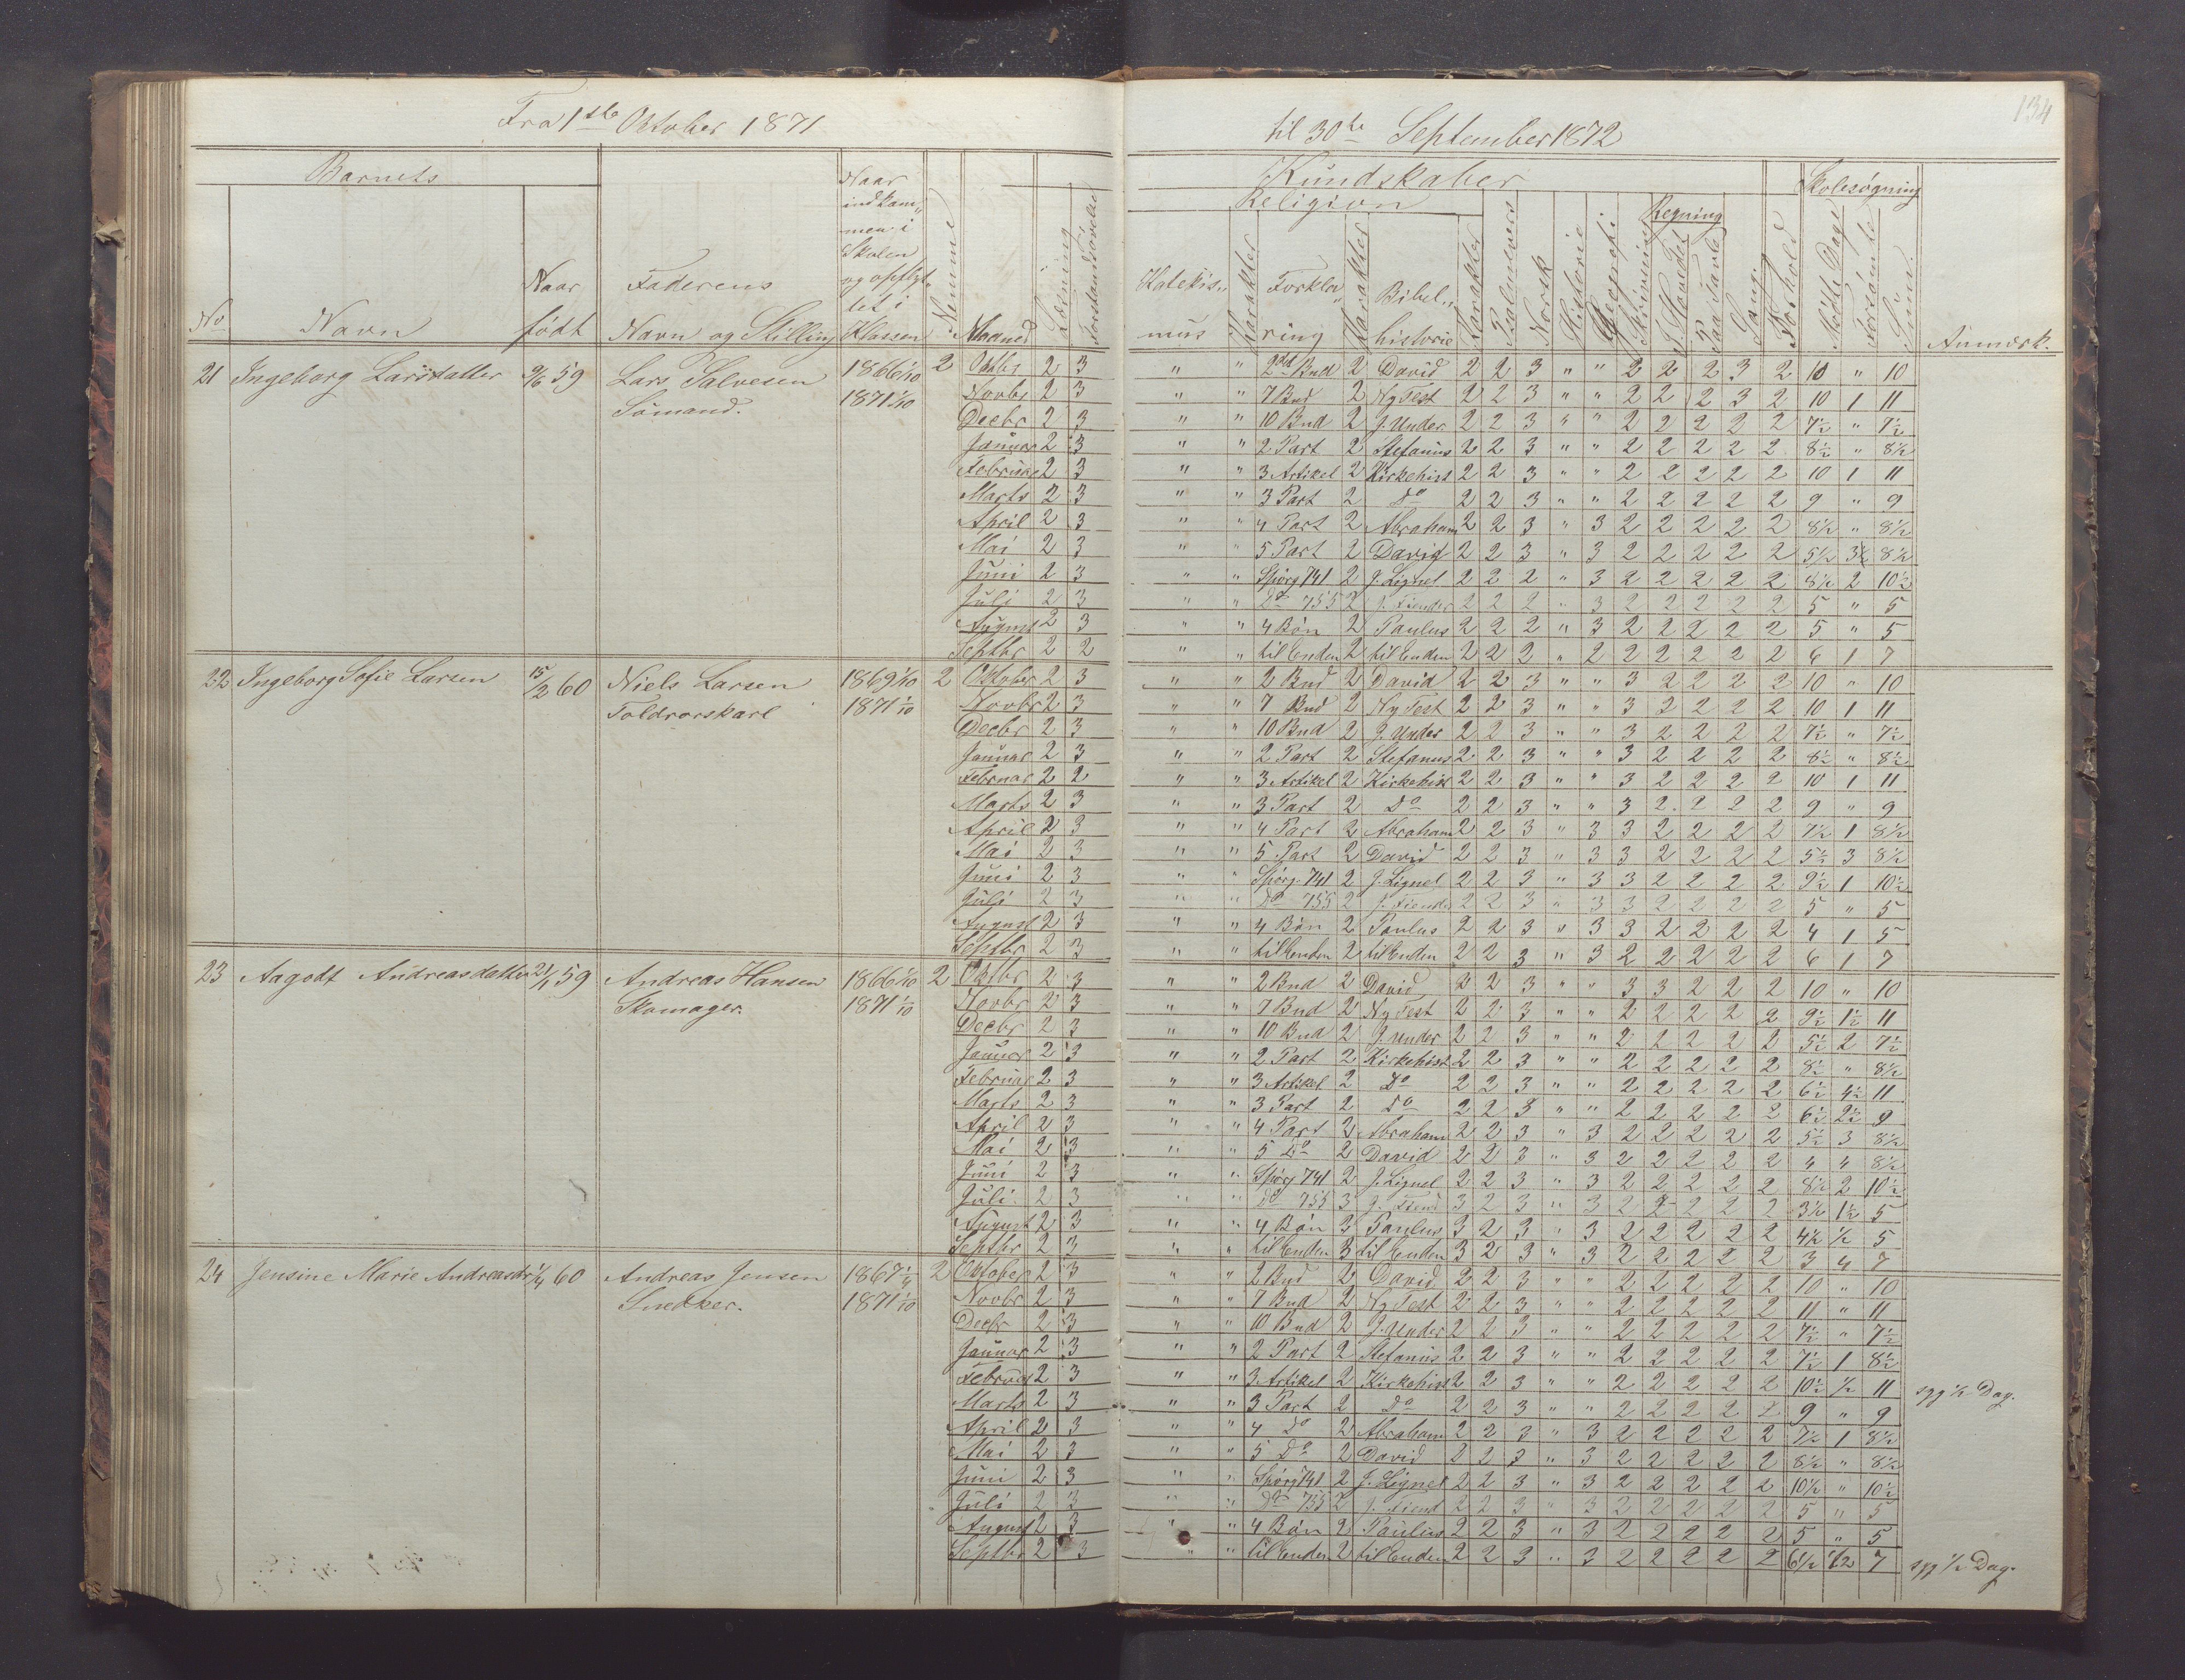 Fra 1ste Oktober 1871 til 30te September 1872
134
Barnets
Kundskaber
Skolesøgning
Religion
Regning
No
Navn
Naar født
Faderens Navn og Stilling
Naar indkommen i Skolen og opflyttet i Klassen
Nemme
Maaned
Læsning
Katekismus
Karakter
Forklaring
Karakter
Bibelhistorie
Karakter
Psalmevers
Norsk
Historie
Geografi
Skrivning
I Hovedet
Paa Tavle
Sang
Forhold
Mødte Dage
Forsømte
Sum
Anmærk.
21 Ingeborg Larsdatter 9/6 59 Lars Salvesen 1866 1/10 2 Oktbr 2 3 " " 2det Bud 2 David 2 2 3 " " 2 2 2 3 2 10 " 10
Sømand. 1871 1/10 Novbr 2 3 " " 7 Bud 2 Ny Test 2 2 3 " " 2 2 2 3 2 10 1 11
Decbr 2 3 " " 10 Bud 2 J. Under 2 2 3 " " 2 2 2 2 2 7½ " 7½
Januar 2 3 " " 2 Part 2 Stefanus 2 2 3 " " 2 2 2 2 2 8½ " 8½
Februar 2 3 " " 3 Artikel 2 Kirkehist 2 2 3 " " 2 2 2 2 2 10 1 11
Marts 2 3 " " 3 Part 2 Do 2 2 3 " " 2 2 2 2 2 9 " 9
April 2 3 " " 4 Part 2 Abraham 2 2 3 " 3 2 2 2 2 2 8½ " 8½
Mai 2 3 " " 5 Part 2 David 2 2 3 " 3 2 2 2 2 2 5½ 3 8½
Juni 2 3 " " Spørg 741 2 J. Lignel 2 2 2 " 3 2 2 2 2 2 8½ 2 10½
Juli 2 3 " " Do 755 2 J. Fiender 2 2 2 " 3 2 2 2 2 2 5 " 5
August 2 3 " " 4 Bøn 2 Paulus 2 2 2 " 3 2 2 2 2 2 5 " 5
Septbr 2 2 " " til Enden 2 til Enden 2 2 2 " 2 2 2 2 2 2 6 1 7
22 Ingeborg Sofie Larsen 15/2 60 Niels Larsen 1869 1/10 2 Oktober 2 3 " " 2 Bud 2 David 2 2 3 " " 3 2 2 2 2 10 " 10
Toldrorskarl 1871 1/10 Novbr 2 3 " " 7 Bud 2 Ny Test 2 2 3 " " 3 2 2 2 2 10 1 11
Decbr 2 3 " " 10 Bud 2 J. Under 2 2 3 " " 3 2 2 2 2 7½ " 7½
Januar 2 3 " " 2 Part 2 Stefanus 2 2 3 " " 3 2 2 2 2 8½ " 8½
Februar 2 2 " " 3 Artikel 2 Kirkehist 2 2 3 " " 3 2 2 2 2 10 1 11
Marts 2 3 " " 3 Part 2 Do 2 2 3 " " 3 2 2 2 2 9 " 9
April 2 3 " " 4 Part 2 Abraham 2 2 3 " 3 3 2 2 2 2 7½ 1 8½
Mai 2 3 " " 5 Part 2 David 2 2 3 " 3 3 2 2 2 2 5½ 3 8½
Juni 2 3 " " Spørg. 741 2 J. Lignel 2 2 3 " 3 3 2 2 2 2 9½ 1 10½
Juli 2 3 " " Do 755 2 J. Fiende 2 2 3 " 3 3 2 2 2 2 5 " 5
August 2 3 " " 4 Bøn 2 Paulus 2 2 3 " 3 3 2 2 2 2 4 1 5
Septbr 2 3 " " til Enden 2 til Enden 2 2 3 " 3 2 2 2 2 2 6 1 7
23 Aagodt Andreasdatter 21/1 59 Andreas Hansen 1866 1/10 2 Oktbr 2 3 " " 2 Bud 2 David 2 2 3 " " 3 3 2 2 2 10 " 10
Skomager. 1871 1/10 Novbr 2 3 " " 7 Bud 2 Ny Test 2 2 3 " " 2 2 2 2 2 9½ 1½ 11
Decbr 2 3 " " 10 Bud 2 J. Under 2 2 3 " " 2 2 2 2 2 5½ 2 7½
Januar 2 3 " " 2 Part 2 Kirkehist 2 2 3 " " 2 2 2 2 2 8½ " 8½
Februar 2 3 " " 3 Artikel 2 Do 2 2 3 " " 2 2 2 2 2 6½ 4½ 11
Marts 2 3 " " 3 Part 2 Do 2 2 3 " " 2 2 2 2 2 6½ 2½ 9
April 2 3 " " 4 Part 2 Abraham 2 2 3 " 3 2 2 2 2 2 5½ 3 8½
Mai 2 3 " " 5 Do 2 David 2 2 3 " 3 2 2 2 2 2 4 4 8½
Juni 2 3 " " Spørg 741 2 J. Lignel 2 2 3 " 3 2 2 2 2 2 8½ 2 10½
Juli 2 3 " " Do 755 3 J. Fiend 3 2 3 " 3 2 2 2 2 2 3½ 1½ 5
August 2 3 " " 4 Bøn 3 Paulus 3 2 3 " 3 2 2 2 2 2 4½ ½ 5
Septbr 2 3 " " til Enden 3 til Enden 3 2 3 " 3 2 2 2 2 2 3 4 7
24 Jensine Marie Andreasdr 1/4 60 Andreas Jensen 1867 1/4 2 Oktober 2 3 " " 2 Bud 2 David 2 2 3 " " 2 2 2 2 2 10 " 10
Snedker. 1871 1/10 Novbr 2 3 " " 7 Bud 2 Ny Test 2 2 3 " " 2 2 2 2 2 11 " 11
Decbr 2 3 " " 10 Bud 2 J. Under 2 2 3 " " 2 2 2 2 2 7½ " 7½
Januar 2 3 " " 2 Part 2 Stefanus 2 2 3 " " 2 2 2 2 2 7½ 1 8½
Februar 2 3 " " 3 Artikel 2 Kirkehist 2 2 3 " " 2 2 2 2 2 10½ ½ 11 syg ½ Dag.
Marts 2 3 " " 3 Part 2 Do 2 2 3 " " 2 2 2 2 2 9 " 9
April 2 3 " " 4 Do 2 Abraham 2 2 3 " 3 2 2 2 2 2 7½ 1 8½
Mai 2 3 " " 5 Do 2 David 2 2 3 " 3 2 2 2 2 2 8½ " 8½
Juni 2 3 " " Spørg 741 2 J. Lignel 2 2 3 " 3 2 2 2 2 2 10½ " 10½
Juli 2 3 " " Do 755 2 J. Fiend 2 2 3 " 3 2 2 2 2 2 5 " 5
August 2 3 " " 4 Bøn 2 Paulus 2 2 3 " 3 2 2 2 2 2 5 " 5
Septbr 2 3 " " til Enden 2 til Enden 2 2 3 " 3 2 2 2 2 2 6½ ½ 7 syg ½ Dag.